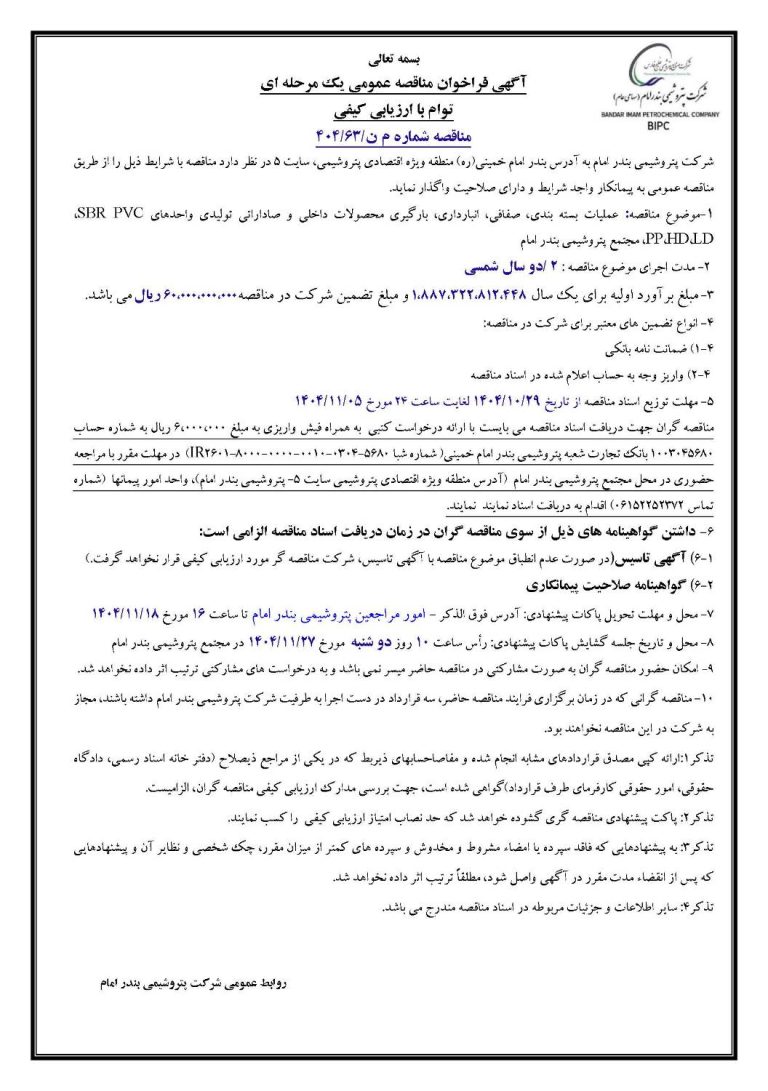 بسمه تعالی
آگهی فراخوان مناقصه عمومی یک مرحله ای
توام با ارزیابی کیفی
مناقصه شماره م ن/۴۰۴/۶۳
شرکت پتروشیمی بندرامام (سهامی عام)
BANDAR IMAM PETROCHEMICAL COMPANY
BIPC
شرکت پتروشیمی بندر امام به آدرس بندر امام خمینی(ره) منطقه ویژه اقتصادی پتروشیمی، سایت ۵ در نظر دارد مناقصه با شرایط ذیل را از طریق
مناقصه عمومی به پیمانکار واجد شرایط و دارای صلاحیت واگذار نماید.
۱-موضوع مناقصه: عملیات بسته بندی، صفافی، انبارداری، بارگیری محصولات داخلی و صاداراتی تولیدی واحدهای SBR PVC،
PP،HD،LD، مجتمع پتروشیمی بندر امام
۲- مدت اجرای موضوع مناقصه : ۲ /دو سال شمسی
۳-مبلغ برآورد اولیه برای یک سال ۱،۸۸۷،۳۲۲،۸۱۲،۴۴۸ و مبلغ تضمین شرکت در مناقصه ۶۰،۰۰۰،۰۰۰،۰۰۰ ریال می باشد.
۴- انواع تضمین های معتبر برای شرکت در مناقصه:
۴-۱) ضمانت نامه بانکی
۴-۲) واریز وجه به حساب اعلام شده در اسناد مناقصه
۵- مهلت توزیع اسناد مناقصه از تاریخ ۱۴۰۴/۱۰/۲۹ لغایت ساعت ۲۴ مورخ ۱۴۰۴/۱۱/۰۵
مناقصه گران جهت دریافت اسناد مناقصه می بایست با ارائه درخواست کتبی به همراه فیش واریزی به مبلغ ۶،۰۰۰،۰۰۰ ریال به شماره حساب
۱۰۰۳۰۴۵۶۸۰ بانک تجارت شعبه پتروشیمی بندر امام خمینی( شماره شبا IR۲۶۰۱-۸۰۰۰-۰۰۰۰-۰۰۱۰-۰۳۰۴-۵۶۸۰) در مهلت مقرر با مراجعه
حضوری در محل مجتمع پتروشیمی بندر امام (آدرس منطقه ویژه اقتصادی پتروشیمی سایت ۵- پتروشیمی بندر امام)، واحد امور پیمانها (شماره
تماس ۰۶۱۵۲۲۵۲۳۷۲) اقدام به دریافت اسناد نمایند نمایند.
۶- داشتن گواهینامه های ذیل از سوی مناقصه گران در زمان دریافت اسناد مناقصه الزامی است:
۶-۱) آگهی تاسیس(در صورت عدم انطباق موضوع مناقصه با آگهی تاسیس، شرکت مناقصه گر مورد ارزیابی کیفی قرار نخواهد گرفت.)
۶-۲) گواهینامه صلاحیت پیمانکاری
۷- محل و مهلت تحویل پاکات پیشنهادی: آدرس فوق الذکر – امور مراجعین پتروشیمی بندر امام تا ساعت ۱۶ مورخ ۱۴۰۴/۱۱/۱۸
۸- محل و تاریخ جلسه گشایش پاکات پیشنهادی: رأس ساعت ۱۰ روز دو شنبه مورخ ۱۴۰۴/۱۱/۲۷ در مجتمع پتروشیمی بندر امام
۹- امکان حضور مناقصه گران به صورت مشارکتی در مناقصه حاضر میسر نمی باشد و به درخواست های مشارکتی ترتیب اثر داده نخواهد شد.
۱۰- مناقصه گرانی که در زمان برگزاری فرایند مناقصه حاضر، سه قرارداد در دست اجرا به طرفیت شرکت پتروشیمی بندر امام داشته باشند، مجاز
به شرکت در این مناقصه نخواهند بود.
تذکر۱:ارائه کپی مصدق قراردادهای مشابه انجام شده و مفاصاحسابهای ذیربط که در یکی از مراجع ذیصلاح (دفتر خانه اسناد رسمی، دادگاه
حقوقی، امور حقوقی کارفرمای طرف قرارداد)گواهی شده است، جهت بررسی مدارک ارزیابی کیفی مناقصه گران، الزامیست.
تذکر۲: پاکت پیشنهادی مناقصه گری گشوده خواهد شد که حد نصاب امتیاز ارزیابی کیفی را کسب نمایند.
تذکر۳: به پیشنهادهایی که فاقد سپرده یا امضاء مشروط و مخدوش و سپرده های کمتر از میزان مقرر، چک شخصی و نظایر آن و پیشنهادهایی
که پس از انقضاء مدت مقرر در آگهی واصل شود، مطلقاً ترتیب اثر داده نخواهد شد.
تذکر۴: سایر اطلاعات و جزئیات مربوطه در اسناد مناقصه مندرج می باشد.
روابط عمومی شرکت پتروشیمی بندر امام